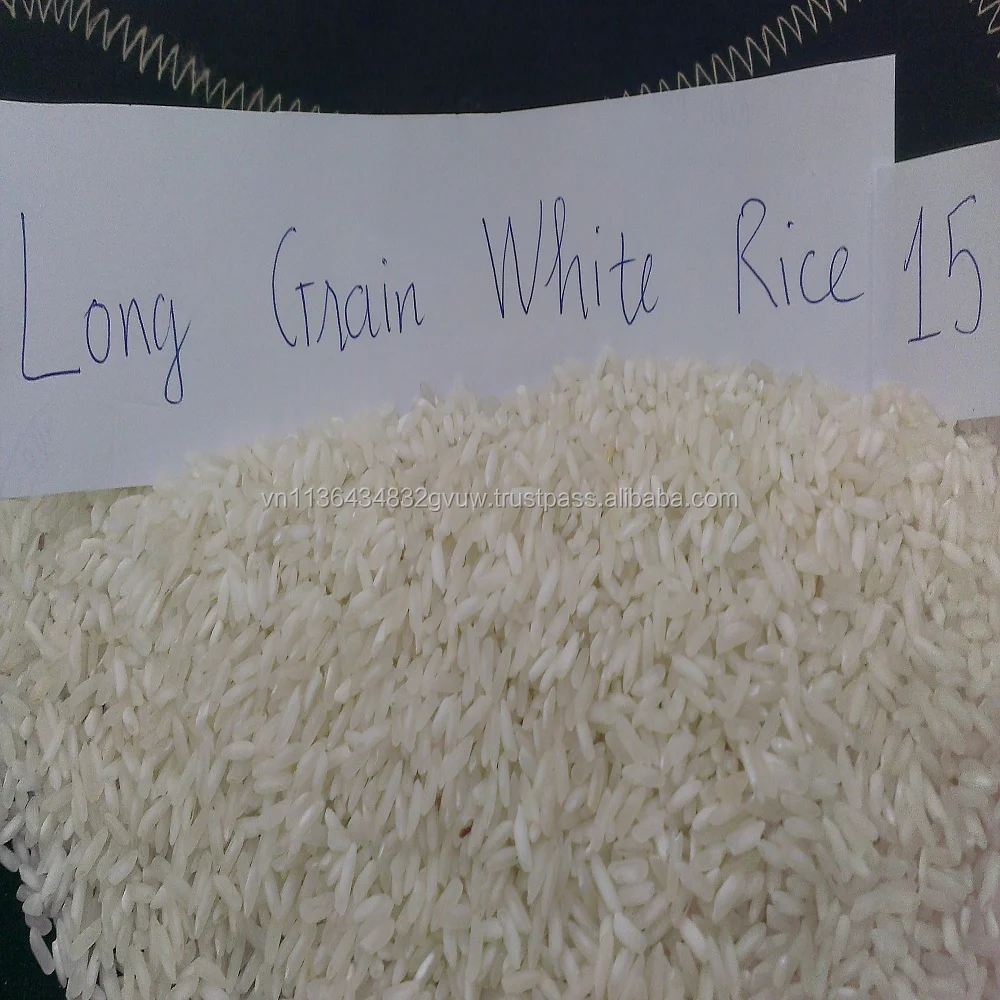 Long Grain White Rice 15
vn1136434832gvuw.trustpass.alibaba.com